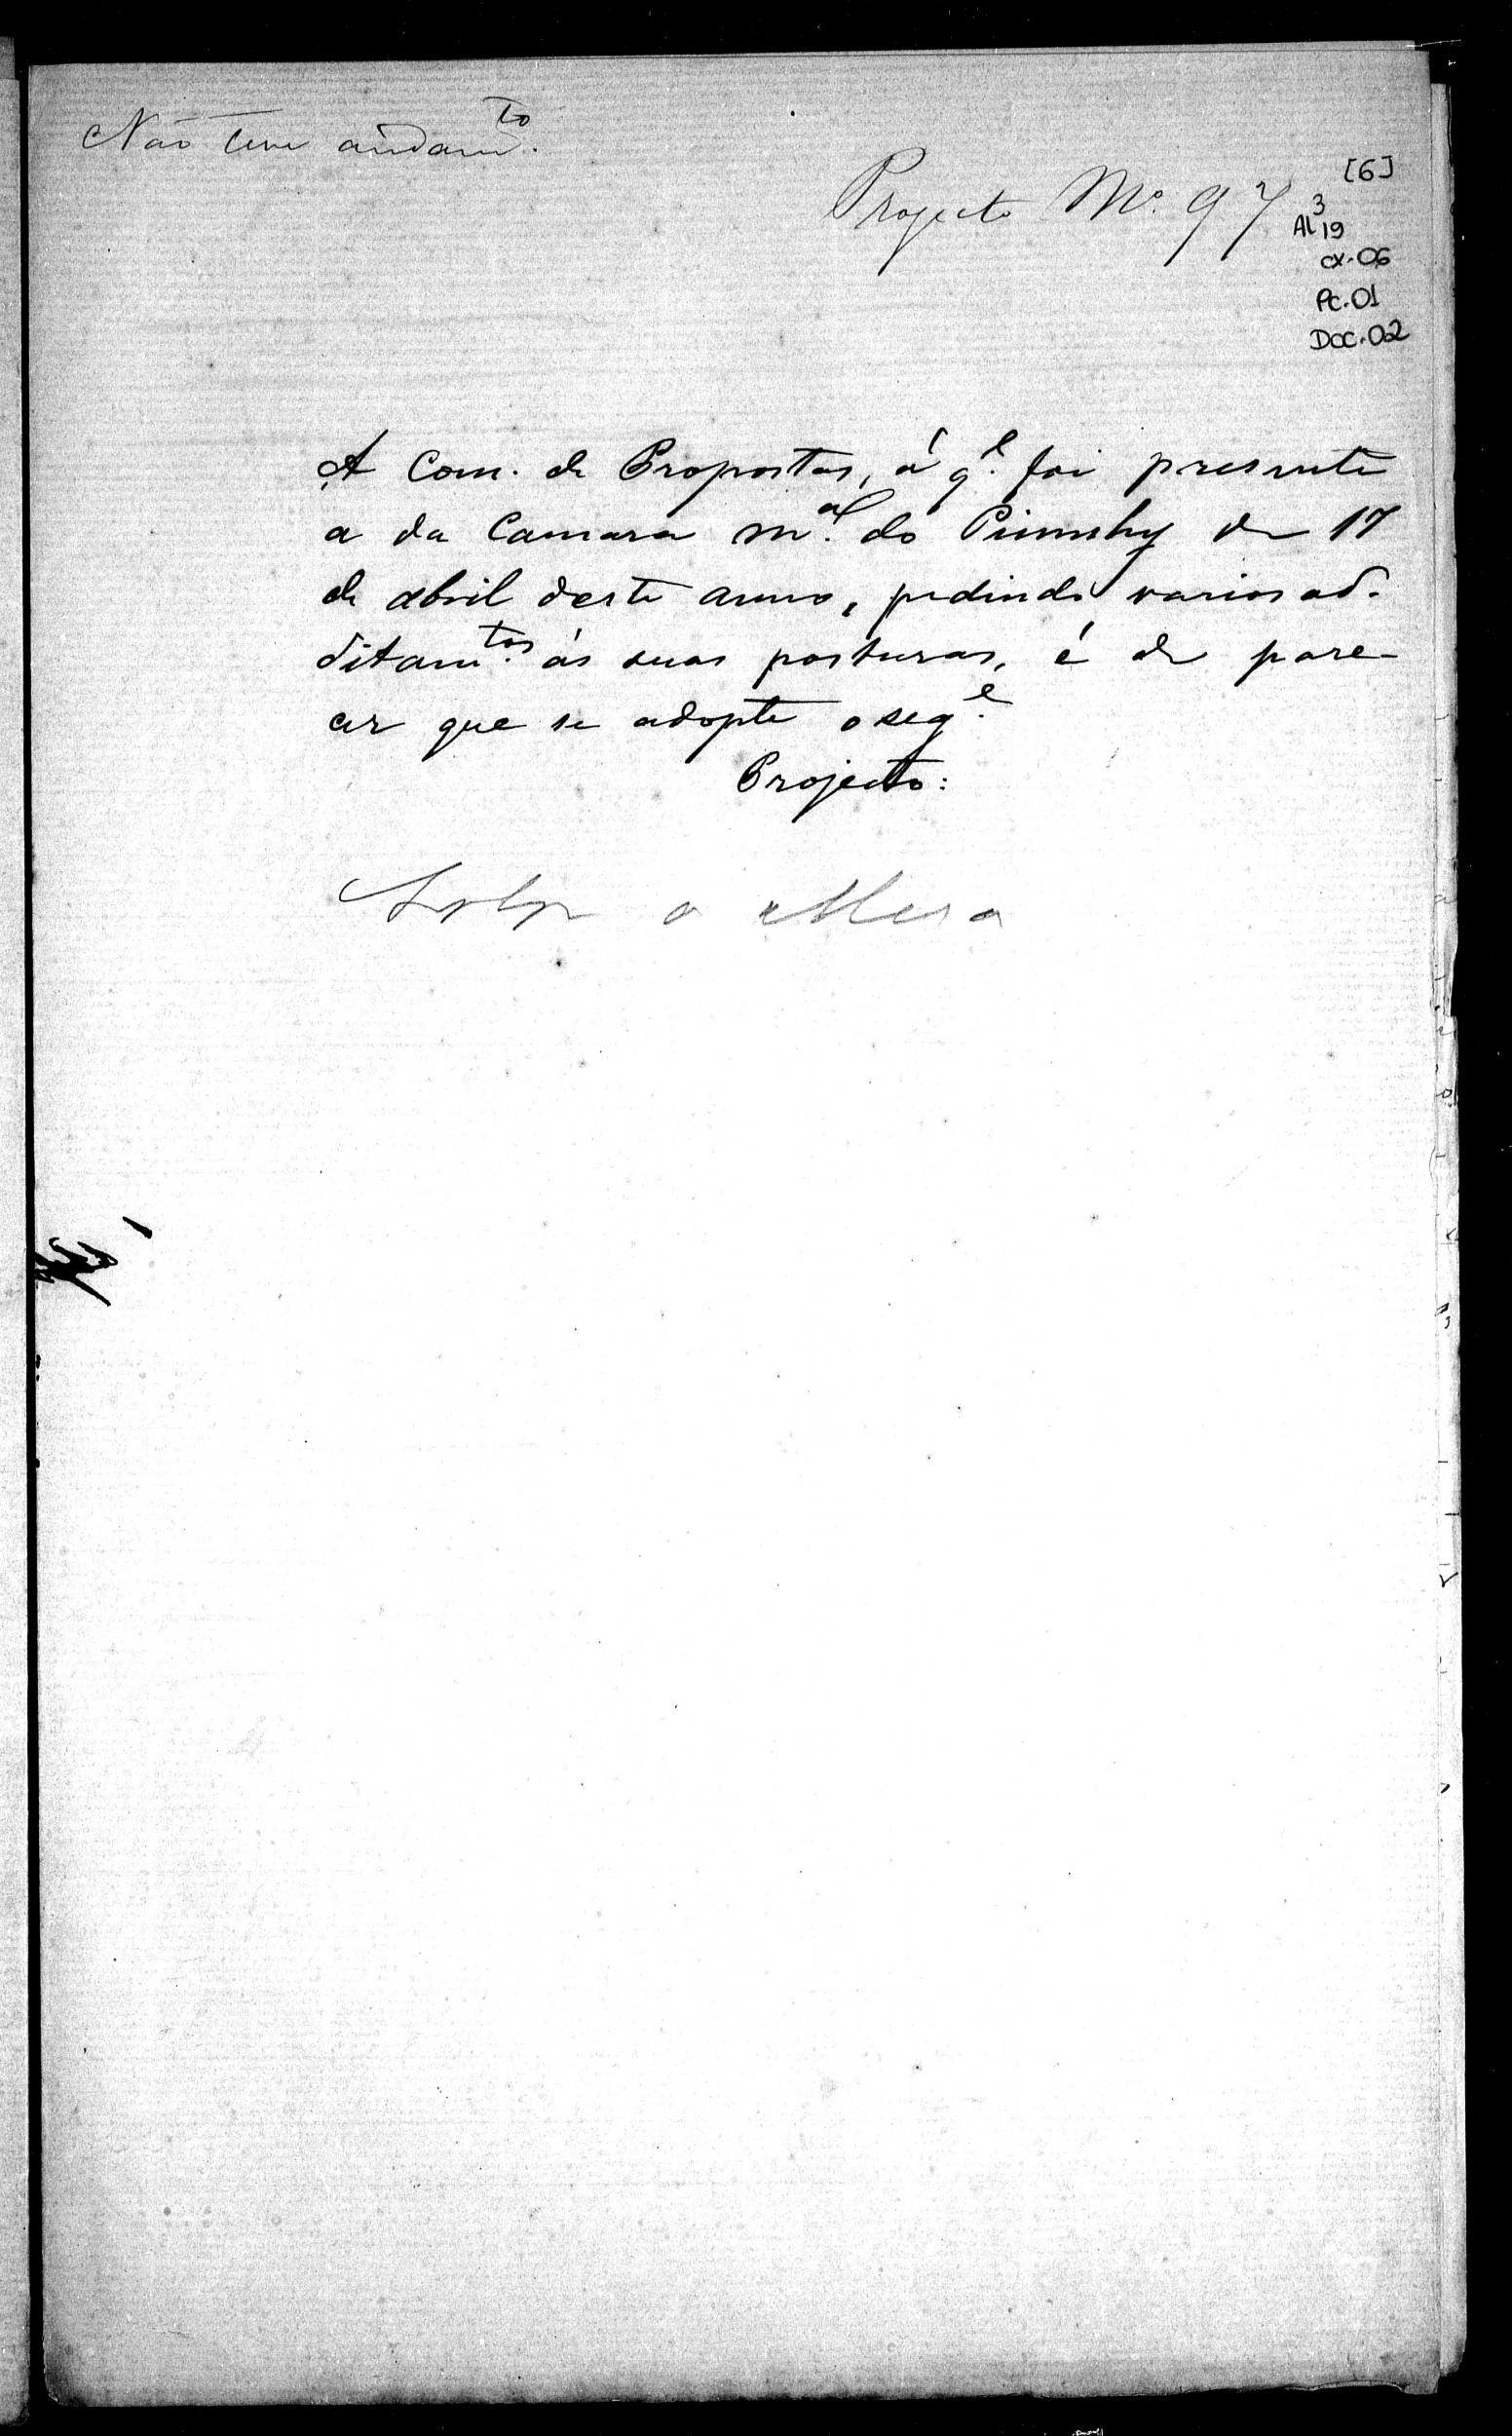 Não teve andam.to
Projecto Nº 97
[6]
AL 3
19
cx.06
Pc.01
Doc.02
A Com. de Propostas, á q.l foi presente
a da Camara M.al do Piumhy de 17
de abril deste anno, pedindo varios ad-
ditam.tos ás suas posturas, é de pare-
cer que se adopte o seg.e
Projecto:
a Mesa